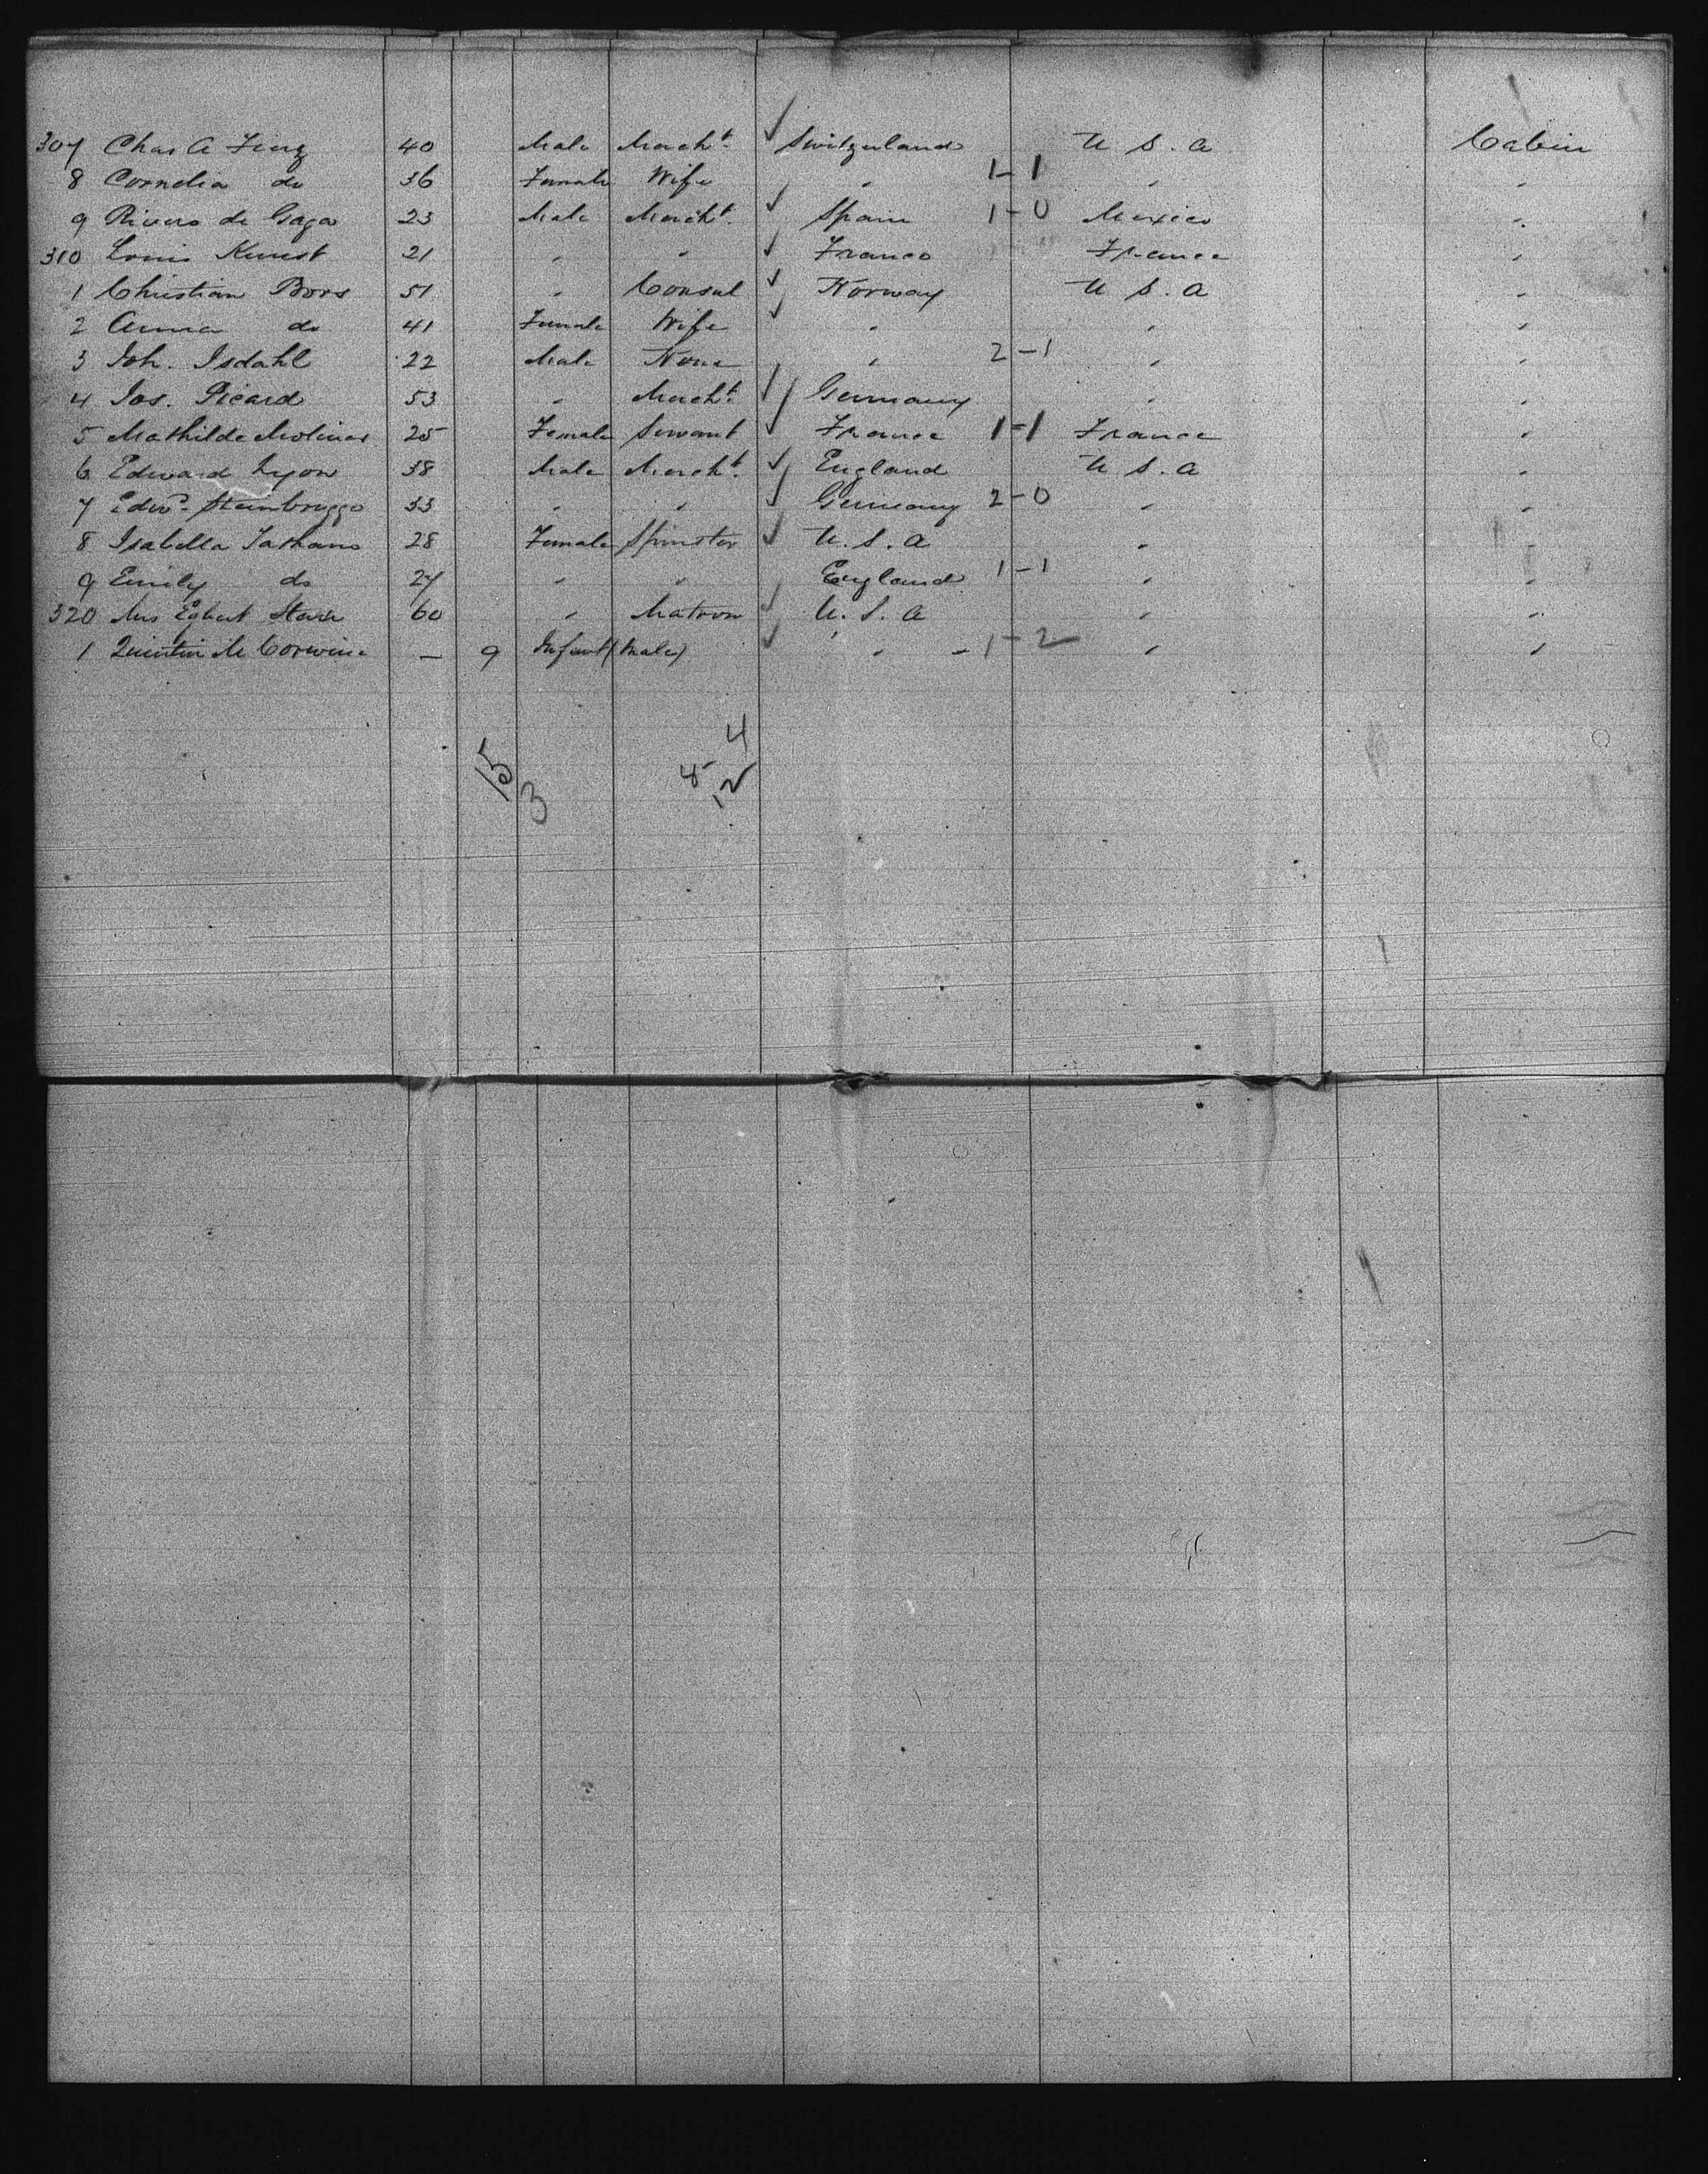 307 Chas A Zing 40 Male Mercht. ✓ Switzerland U S. A Cabin
8 Cornelia do 36 Female Wife " 1-1 " "
9 Rivero de Gaga 23 Male Mercht. ✓ Spain 1-0 Mexico "
310 Louis Kunst 21 " " ✓ France France "
1 Christian Bors 51 " Consul ✓ Norway U S. A "
2 Anna do 41 Female Wife ✓ " " "
3 Joh. Isdahl 22 Male None " 2-1 " "
4 Jos. Picard 53 " Mercht. ✓ Germany " "
5 Mathilde Molinar 25 Female Servant ✓ France 1-1 France "
6 Edward Lyon 38 Male Mercht. ✓ England U S. A "
7 Edwd. Steinbrugge 33 " " ✓ Germany 2-0 " "
8 Isabella 28 Female Spinster ✓ U. S. A " "
9 Emily do 27 " " England 1-1 " "
320 Mrs Egbert Starr 60 " Matron ✓ U. S. A " "
1 Quintin M Corwine — 9 Infant (Male) ✓ " - 1-2 " "
4
15 3 12